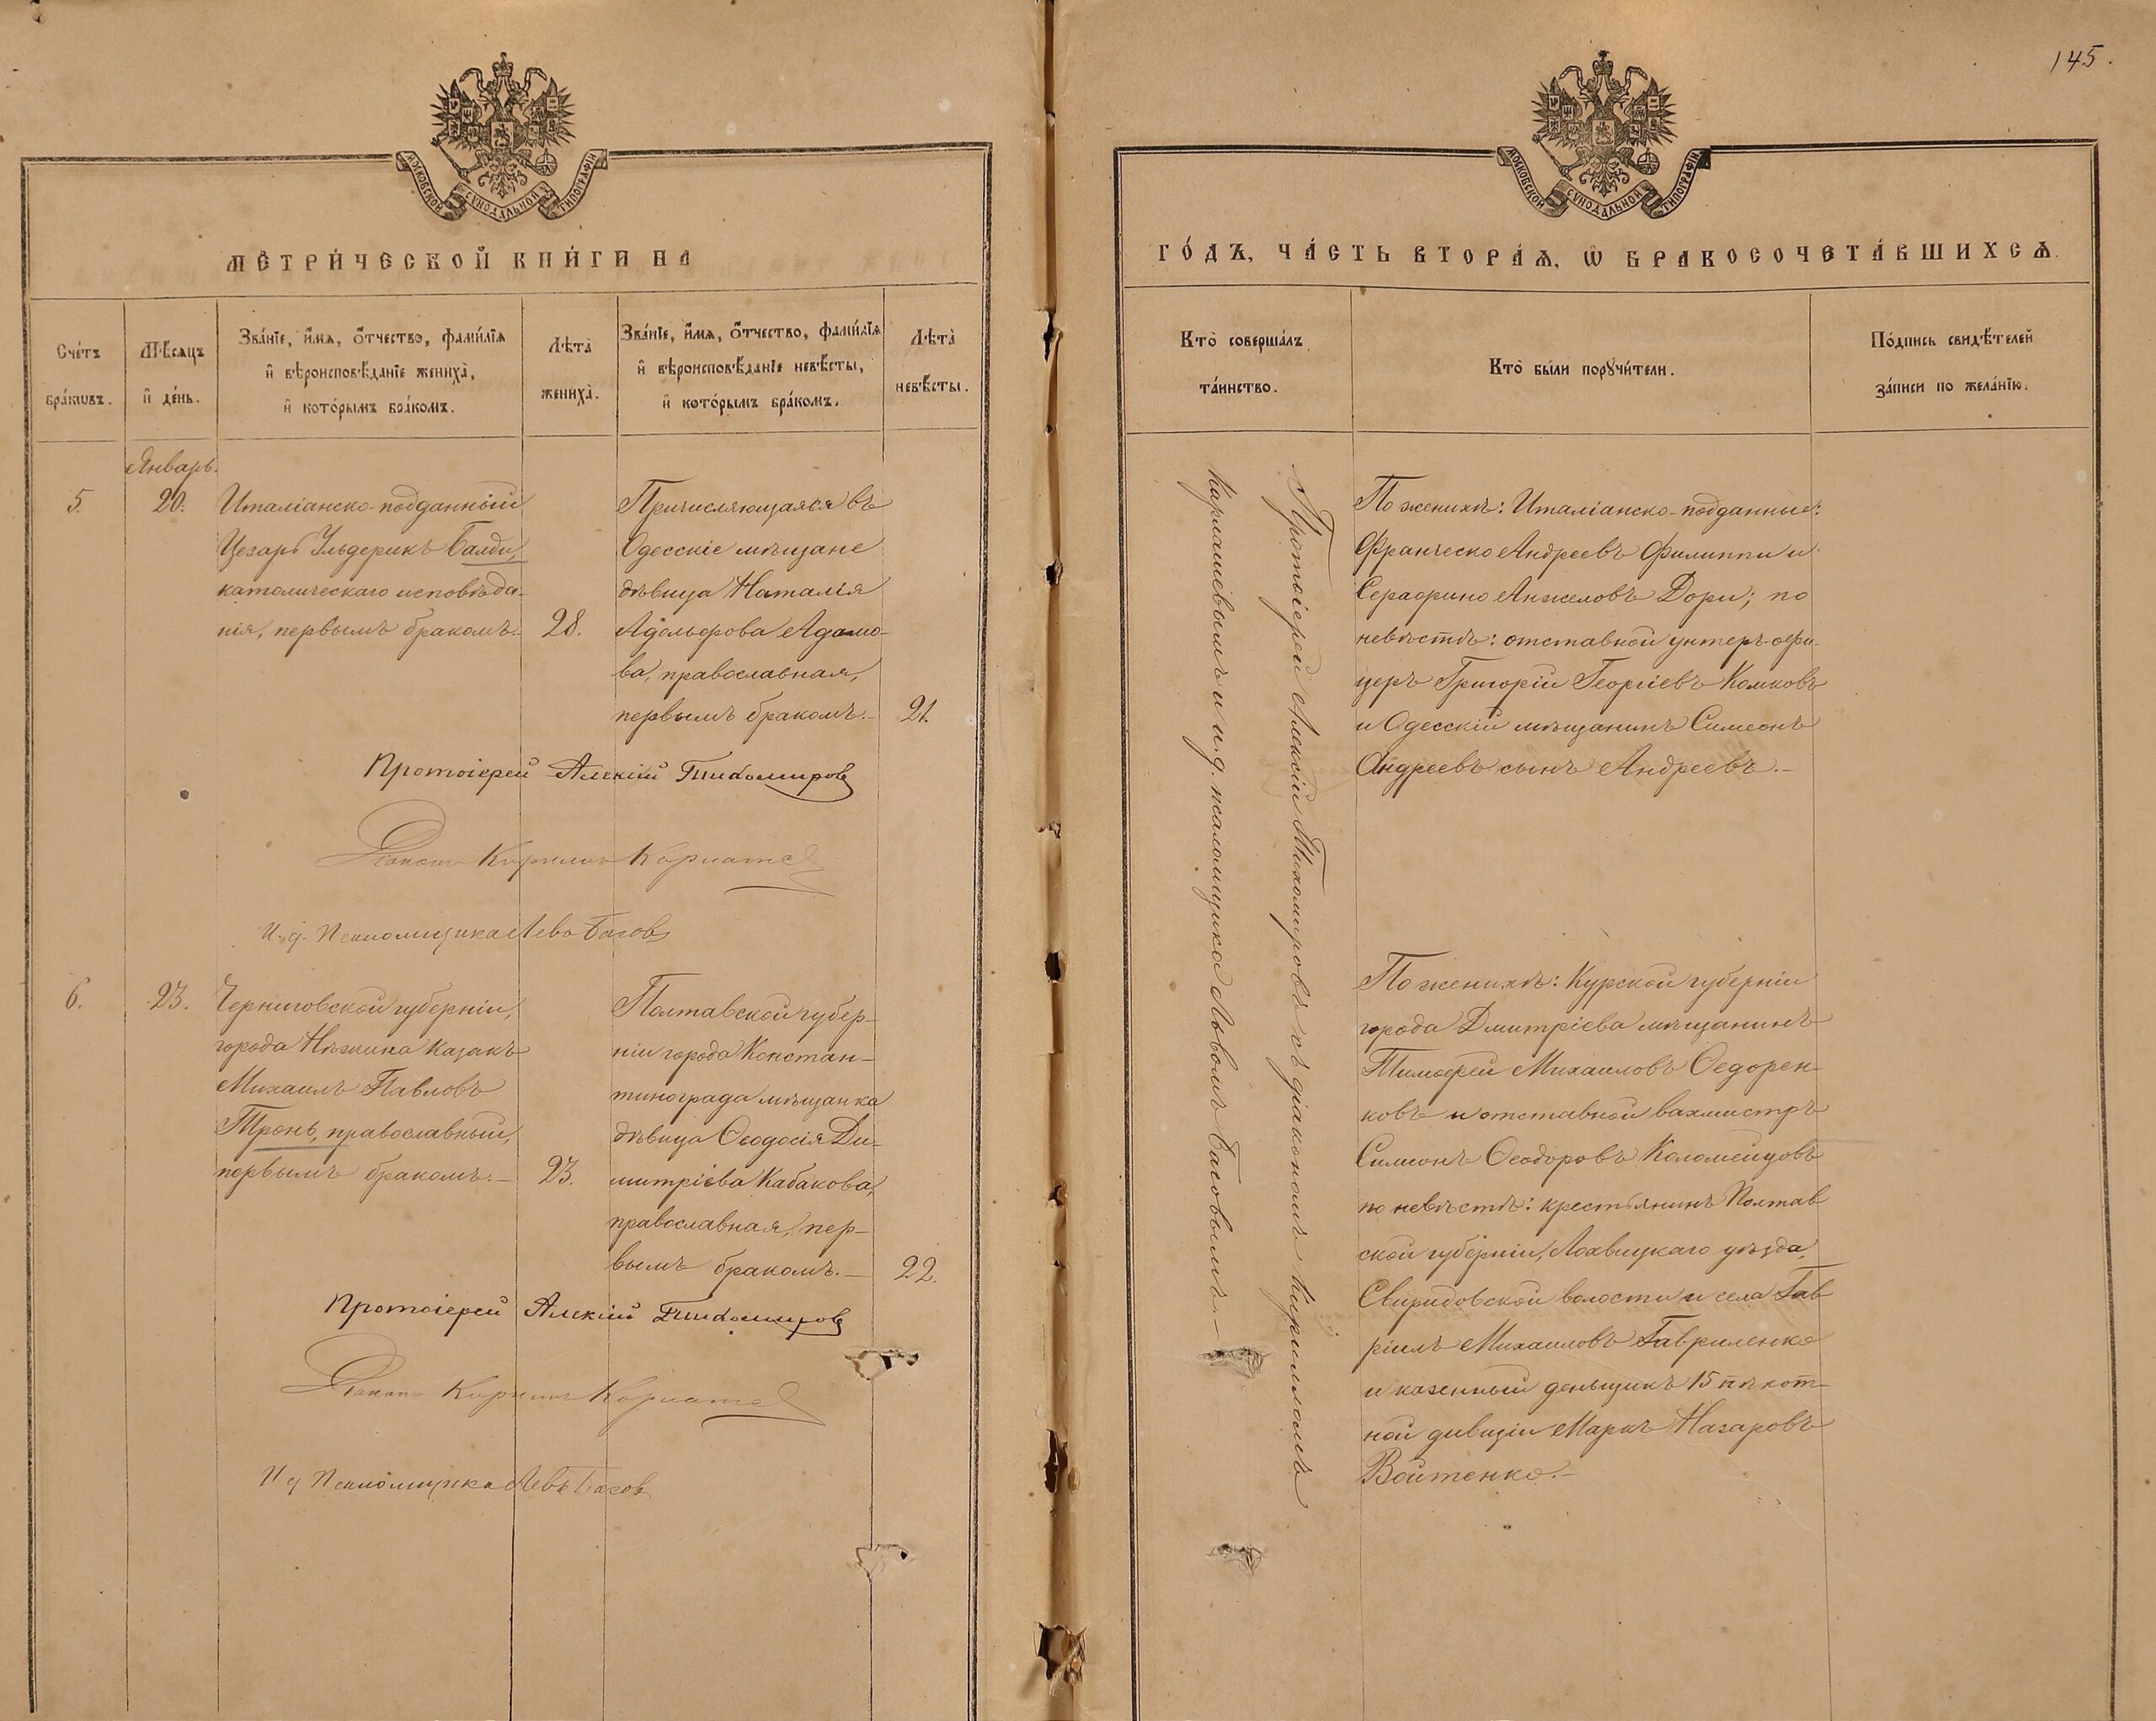 145.
МОСКОВСКОЙ СѴНОДАЛЬНОЙ ТИПОГРАФІИ
МЕТРИ́ЧЕСКОЙ КНИ́ГИ НА
Сче́тъ бра́ковъ.
Мѣ́сяцъ и де́нь.
Зва́нїе, и́мѧ, ѻ҆́тчество, фами́лїѧ
и҆ вѣроисповѣ́данїе жениха̀,
и҆ кото́рымъ бра́комъ.
Лѣта̀ жениха̀.
Зва́нїе, и́мѧ, ѻ҆́тчество, фами́лїѧ
и҆ вѣроисповѣ́данїе невѣ́сты,
и҆ кото́рымъ бра́комъ.
Лѣта̀ невѣ́сты.
Январь.
5.
20.
Италіанско-подданный
Цезарь Ульдерикъ Балди,
католическаго исповѣда-
нія, первымъ бракомъ.-
28.
Причисляющаяся въ
Одесскіе мѣщане
дѣвица Наталія
Адольфова Адамо-
ва, православная,
первымъ бракомъ.-
21.
Протоіерей Алексій Тихомировъ
Діаконъ Кириллъ Карпаше
И. д. Псаломщика Левъ Басовъ
6.
23.
Черниговской губерніи,
города Нѣжина казакъ
Михаилъ Павловъ
Тронь, православный,
первымъ бракомъ.-
23.
Полтавской губер-
ніи города Констан-
тинограда мѣщанка
дѣвица Ѳеодосія Ди-
митріева Кабакова,
православная, пер-
вымъ бракомъ.-
22.
Протоіерей Алексій Тихомировъ
Діаконъ Кириллъ Карпаше
И д Псаломщика Левъ Басовъ
МОСКОВСКОЙ СѴНОДАЛЬНОЙ ТИПОГРАФІИ
ГО́ДЪ, ЧА́СТЬ ВТОРА́Ѧ, Ѽ БРАКОСОЧЕТА́ВШИХСѦ.
Кто̀ соверша́лъ
та́инство.
Кто̀ бы́ли порꙋчи́тели.
По́дпись свидѣ́телей
за́писи по жела́нїю.
Протоіерей Алексій Тихомировъ съ діакономъ Кирилломъ
Карпашевымъ и и. д. псаломщика Львомъ Басовымъ.-
По женихѣ: Италіанско-подданные:
Франческо Андреевъ Филиппи и
Серафино Анжеловъ Дори; по
невѣстѣ: отставной унтеръ-офи-
церъ Григорій Георгіевъ Комковъ
и Одесскій мѣщанинъ Симеонъ
Андреевъ сынъ Андреевъ.-
По женихѣ: Курской губерніи
города Дмитріева мѣщанинъ
Тимоѳей Михаиловъ Ѳедорен-
ковъ и отставной вахмистръ
Симеонъ Ѳеодоровъ Коломейцовъ
по невѣстѣ: крестьянинъ Полтав
ской губерніи, Лохвицкаго уѣзда,
Свиридовской волости и села Гав
ріилъ Михаиловъ Гавриленко
и казенный деньщикъ 15 пѣхот-
ной дивизіи Маркъ Назаровъ
Войтенко.-